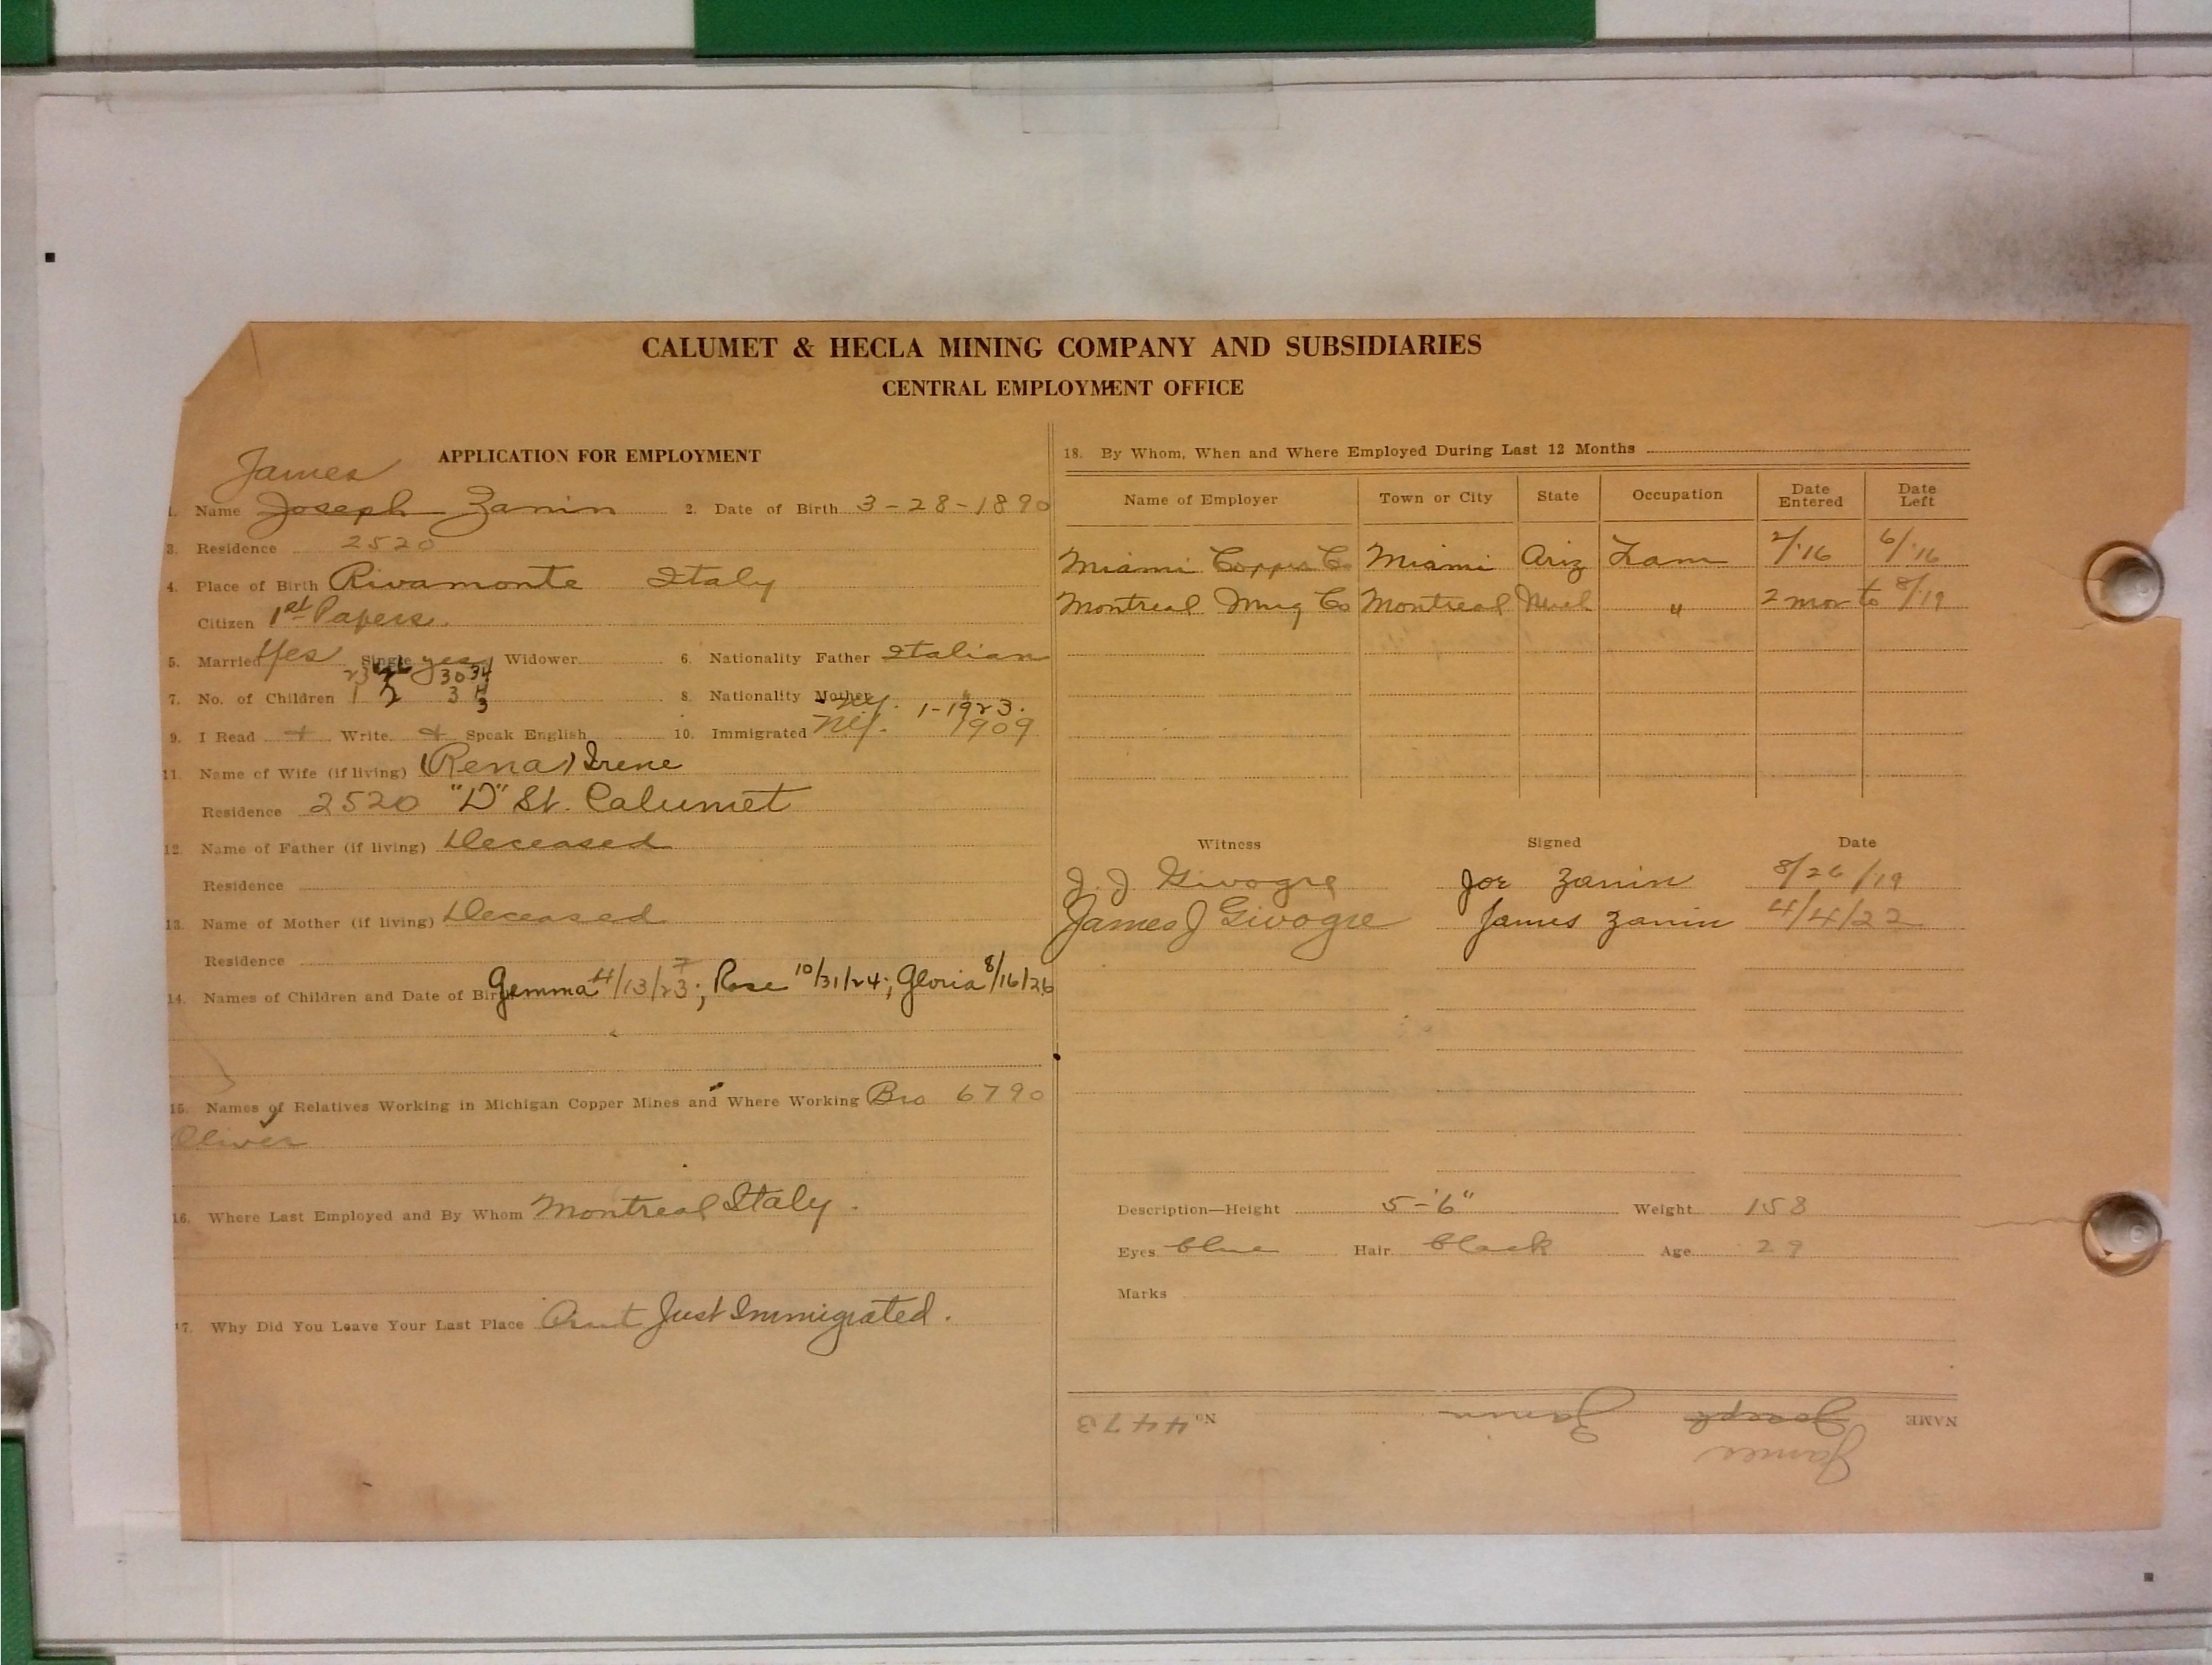 CALUMET & HECLA MINING COMPANY AND SUBSIDIARIES
CENTRAL EMPLOYMENT OFFICE
APPLICATION FOR EMPLOYMENT
James
1. Name Joseph Zanin 2. Date of Birth 3-28-1890
3. Residence 2520
4. Place of Birth Rivamonte Italy
Citizen 1st Papers.
5. Married Yes Single yes Widower 6. Nationality Father Italian
23 26 30 34
7. No. of Children 1 2 3 4 8. Nationality Mother "
3
NY. 1-1923.
9. I Read + Write + Speak English 10. Immigrated NY. 1909
11. Name of Wife (if living) (Rena) Irene
Residence 2520 "D" St. Calumet
12. Name of Father (if living) Deceased
Residence
13. Name of Mother (if living) Deceased
Residence
14. Names of Children and Date of Birth Gemma 4/13/23; Rose 10/31/24; Gloria 8/16/26
15. Names of Relatives Working in Michigan Copper Mines and Where Working Bro 6790
Oliver
16. Where Last Employed and By Whom Montreal Italy.
17. Why Did You Leave Your Last Place Just Immigrated.
18. By Whom, When and Where Employed During Last 12 Months
Name of Employer Town or City State Occupation Date Entered Date Left
Miami Copper Co Miami Ariz Tram 2/'16 6/'16
Montreal Mng Co Montreal Mich " 2 mos to 8/19
Witness Signed Date
J. J Givogre Joe Zanin 8/26/19
James J Givogre James Zanin 4/4/22
Description—Height 5-6" Weight 158
Eyes blue Hair black Age 29
Marks
NAME Joseph Zanin No 4473
James